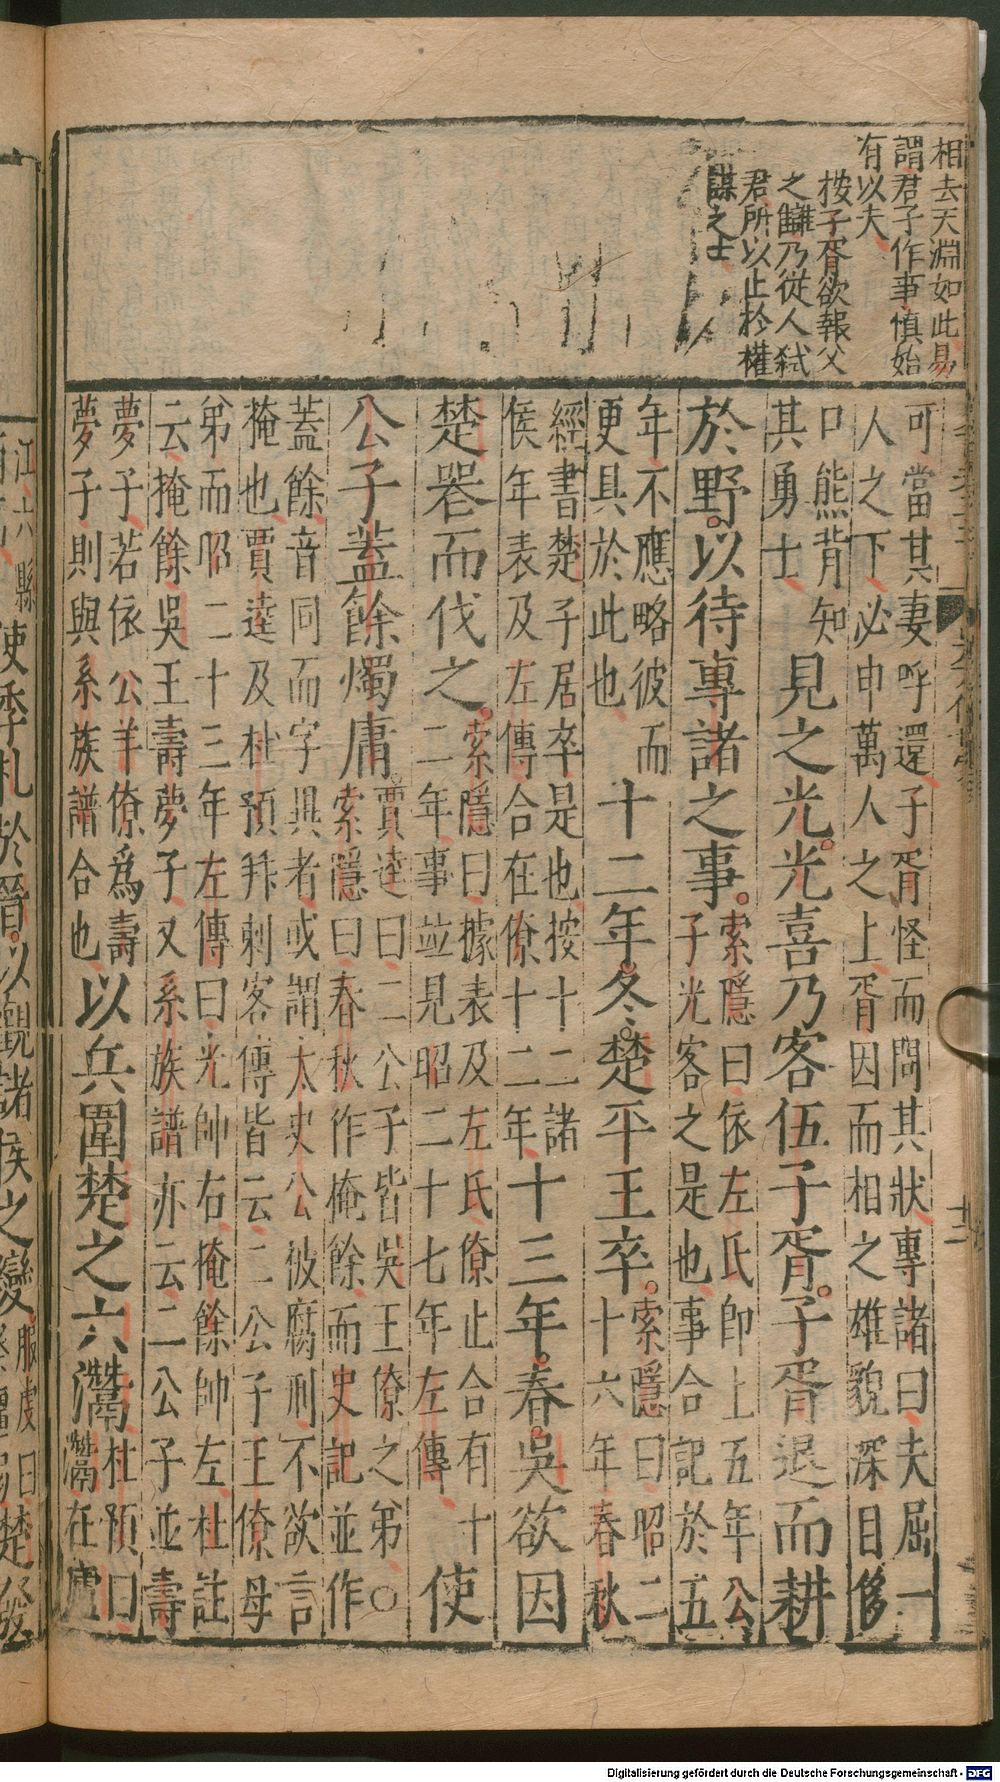 相去天淵如此易
謂君子作事慎始
有以夫
按子胥欲報父
之讎乃從人弑
君所以止於權
謀之士
可當其妻呼還子胥怪而問其狀專諸曰夫屈一
人之下必申萬人之上胥因而相之雄貌深目侈
口熊背知
其勇士
見之光光喜乃客伍子胥子胥退而耕
於野以待專諸之事
索隱曰依左氏即上五年公
子光客之是也事合記於五
年不應略彼而
更具於此也
十二年冬楚平王卒
索隱曰昭二
十六年春秋
經書楚子居卒是也按十二諸
侯年表及左傳合在僚十二年
十三年春吳欲因
楚喪而伐之
索隱曰據表及左氏僚止合有十
二年事並見昭二十七年左傳
使
公子蓋餘燭庸
賈逵曰二公子皆吳王僚之弟○
索隱曰春秋作掩餘而史記並作
蓋餘音同而字異者或謂太史公被腐刑不欲言
掩也賈逵及杜預并刺客傳皆云二公子王僚母
弟而昭二十三年左傳曰光帥右掩餘帥左杜註
云掩餘吳王壽夢子又系族譜亦云二公子並壽
夢子若依公羊僚為壽
夢子則與系族譜合也
以兵圍楚之六灊
杜預曰
灊在廬
江六縣
使季札於晉以觀諸侯之變
服虔曰
楚發
十二
Digitalisierung gefördert durch die Deutsche Forschungsgemeinschaft - DFG